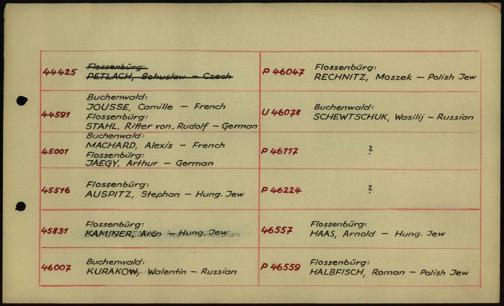 44425
Flossenbürg:
PETLACH, Bohuslaw – Czech
44591
Buchenwald:
JOUSSE, Camille – French
Flossenbürg:
STAHL, Ritter von, Rudolf – German
45001
Buchenwald:
MACHARD, Alexis – French
Flossenbürg:
JAEGY, Arthur – German
45516
Flossenbürg:
AUSPITZ, Stephan – Hung. Jew
45831
Flossenbürg:
KAMINER, – Hung. Jew
46007
Buchenwald:
KURAKOW, Walentin – Russian
P 46047
Flossenbürg:
RECHNITZ, Moszek – Polish Jew
U 46078
Buchenwald:
SCHEWTSCHUK, Wasilij – Russian
P 46117
?
P 46224
?
46557
Flossenbürg:
HAAS, Arnold – Hung. Jew
P 46559
Flossenbürg:
HALBFISCH, Roman – Polish Jew